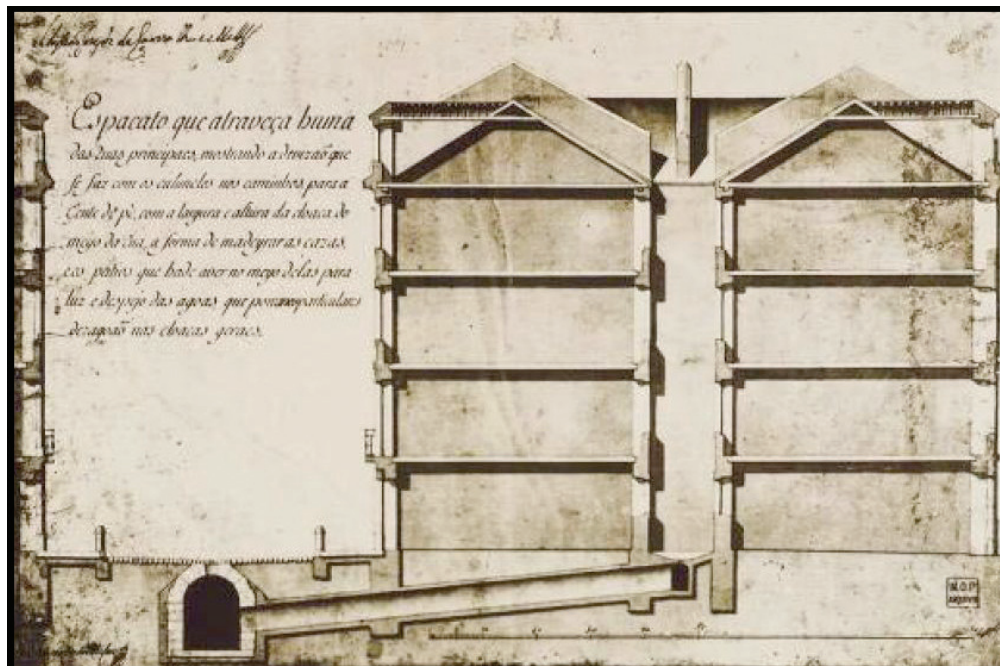 Espacato que atraveça huma
das ruas principaes, mostrando a divizaõ que
se faz com os culunelos nos caminhos para a
Gente de pè, com a largura e altura da cloaca do
meyo da rua, a forma de madeyrar as cazas,
e os pátios que hade aver no meyo delas para
luz e despejo das agoas que por particulares
dezagoaõ nas cloacas geraes.
M.O.P.